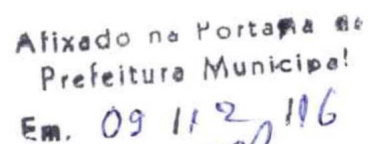 Afixado na Portaria da
Prefeitura Municipal
Em. 09 / 12 / 16